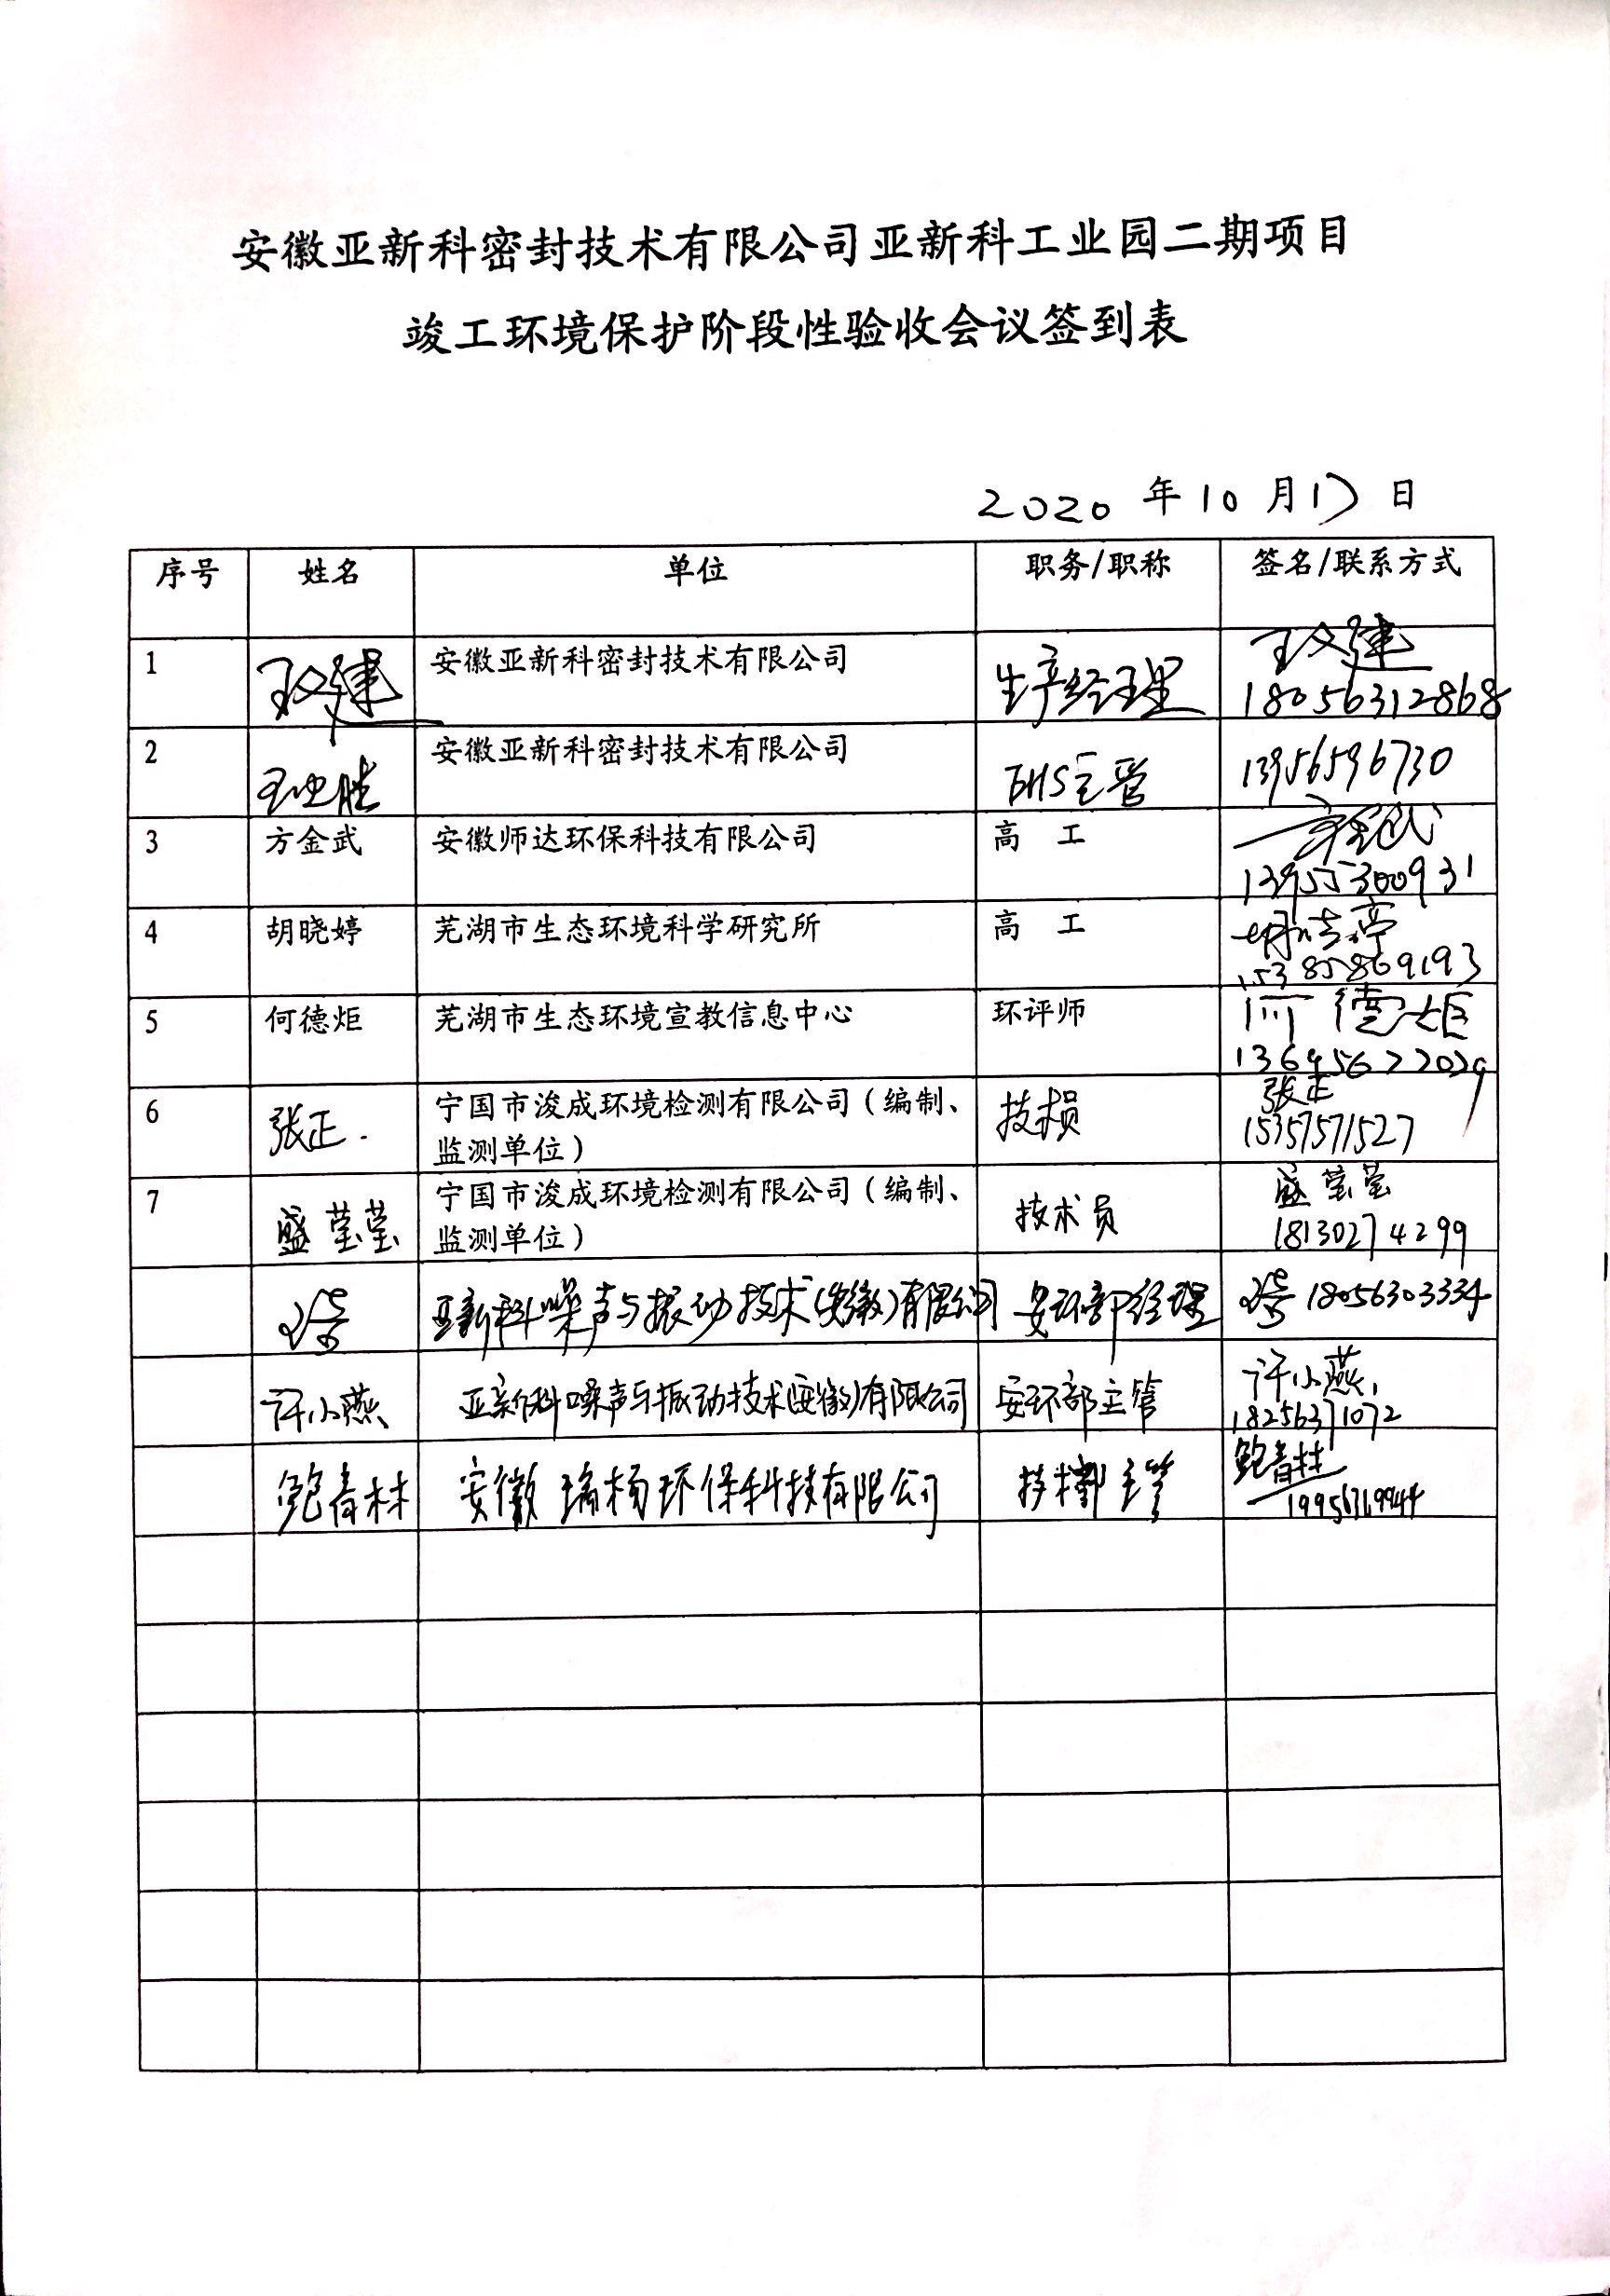 安徽亚新科密封技术有限公司亚新科工业园二期项目
竣工环境保护阶段性验收会议签到表
2020 年 10 月 17 日
序号 姓名 单位 职务/职称 签名/联系方式
1 安徽亚新科密封技术有限公司 生产经理
18056312868
2 安徽亚新科密封技术有限公司 EHS主管 13956596730
3 方金武 安徽师达环保科技有限公司 高 工 方金武
13955300931
4 胡晓婷 芜湖市生态环境科学研究所 高 工 胡晓婷
15385869193
5 何德炬 芜湖市生态环境宣教信息中心 环评师 何德炬
13645622029
6 张正 宁国市浚成环境检测有限公司（编制、 技术员 张正
监测单位） 15357571527
7 盛莹莹 宁国市浚成环境检测有限公司（编制、 技术员 盛莹莹
监测单位） 18130274299
亚新科噪声与振动技术(安徽)有限公司 安环部经理 18056303334
许小燕 亚新科噪声与振动技术(安徽)有限公司 安环部主管 许小燕
18256371072
鲍青林 安徽瑞杨环保科技有限公司 技术部主管 鲍青林